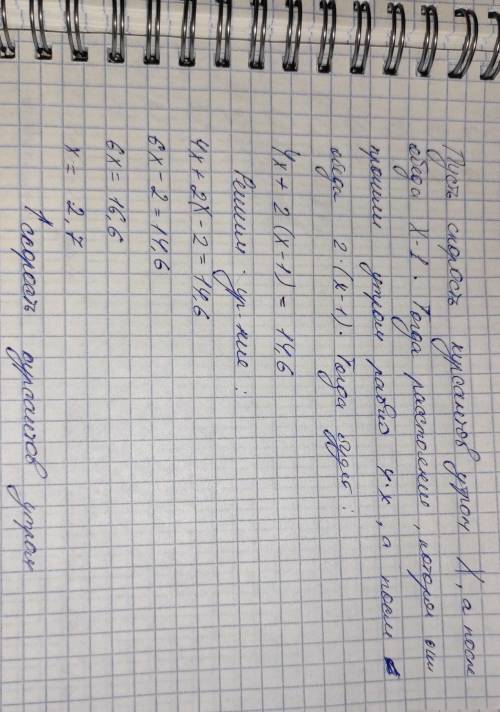 Пусть скорость курсантов утром X, а после
обеда X-1. Тогда расстояние, которое они
прошли утром равно 4·x, а после
обеда 2·(x-1). Тогда будет:
4x + 2(x-1) = 14,6
Решим ур-ние:
4x + 2x - 2 = 14,6
6x - 2 = 14,6
6x = 16,6
x = 2,7
скорость курсантов утром